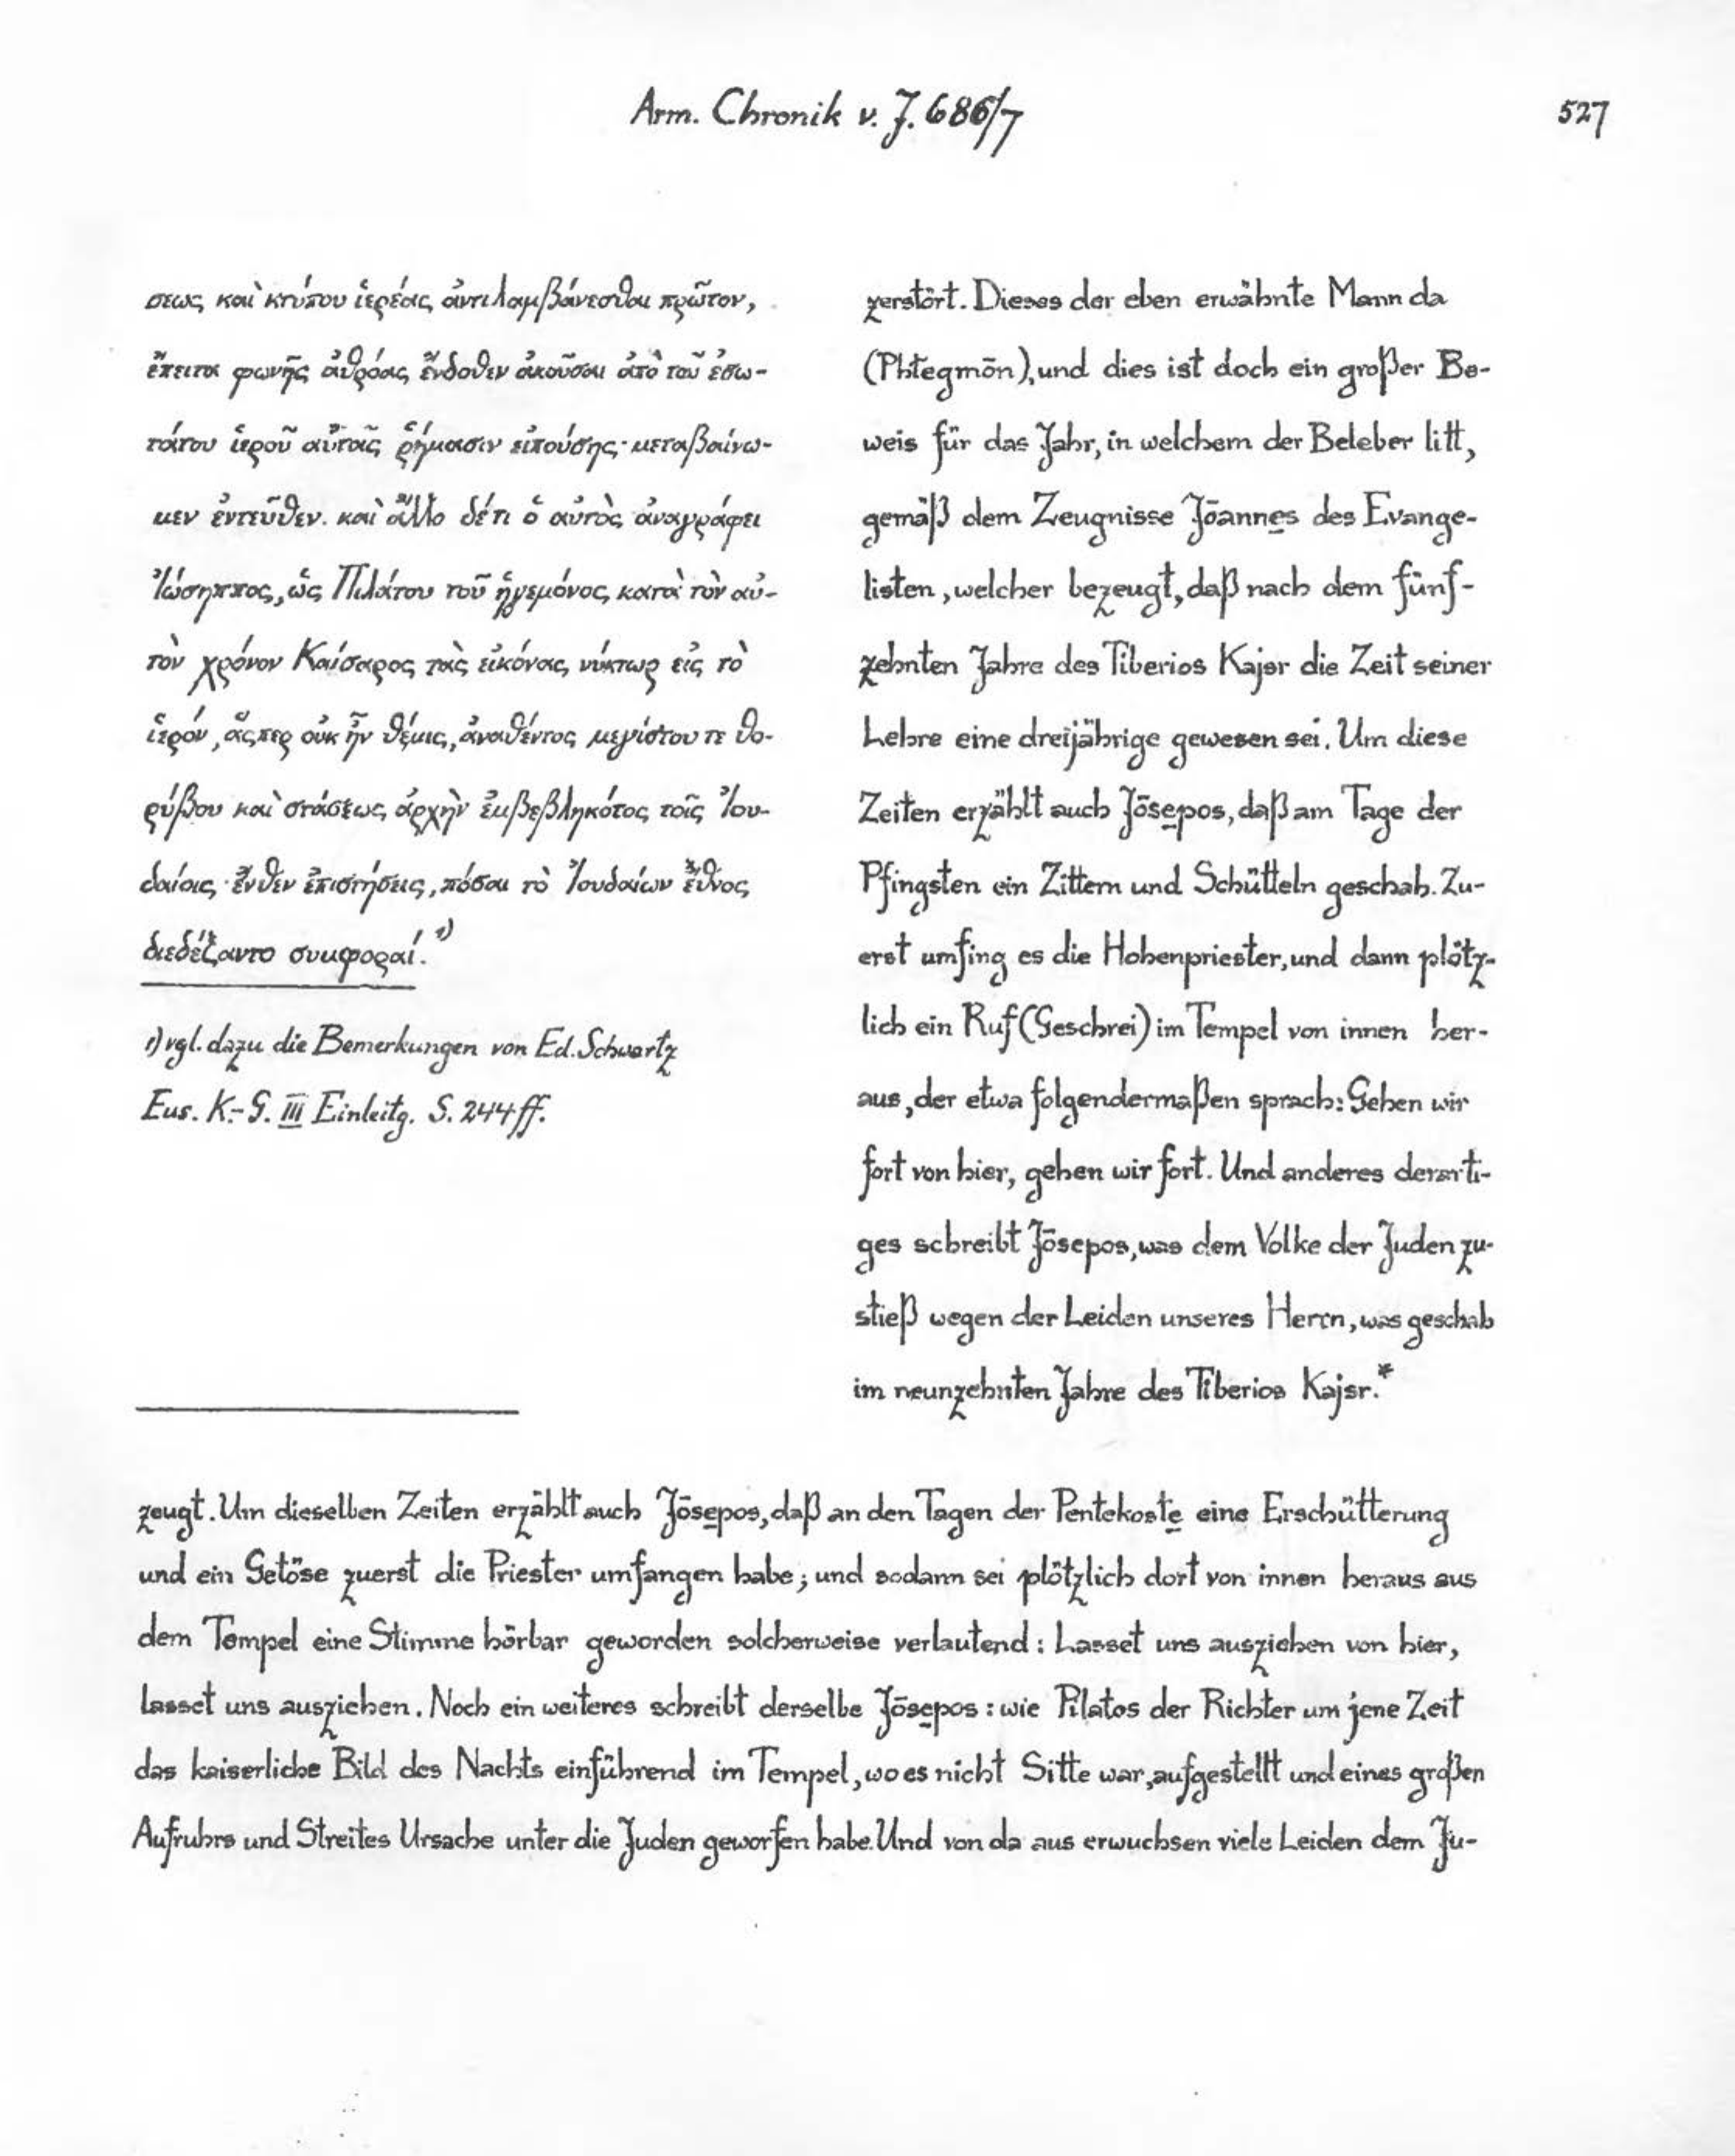 Arm. Chronik v. J. 686/7
527
σεως καὶ κτύπου ἱερέας ἀντιλαμβάνεσθαι πρῶτον,
ἔπειτα φωνῆς ἀθρόας ἔνδοθεν ἀκοῦσαι ἀπὸ τοῦ ἐσω-
τάτου ἱεροῦ αὐταῖς ῥήμασιν εἰπούσης· μεταβαίνω-
μεν ἐντεῦθεν. καὶ ἄλλο δέ τι ὁ αὐτὸς ἀναγράφει
Ἰώσηππος, ὡς Πιλάτου τοῦ ἡγεμόνος κατὰ τὸν αὐ-
τὸν χρόνον Καίσαρος τὰς εἰκόνας νύκτωρ εἰς τὸ
ἱερόν, ἅςπερ οὐκ ἦν θέμις, ἀναθέντος μεγίστου τε θο-
ρύβου καὶ στάσεως ἀρχὴν ἐμβεβληκότος τοῖς Ἰου-
δαίοις· ἔνθεν ἐπιστήσεις, πόσαι τὸ Ἰουδαίων ἔθνος
διεδέξαντο συμφοραί.¹⁾
1) vgl. dazu die Bemerkungen von Ed. Schwartz
Eus. K.-G. III Einleitg. S. 244 ff.
zerstört. Dieses der eben erwähnte Mann da
(Phłegmōn), und dies ist doch ein großer Be-
weis für das Jahr, in welchem der Beleber litt,
gemäß dem Zeugnisse Jōannes des Evange-
listen, welcher bezeugt, daß nach dem fünf-
zehnten Jahre des Tiberios Kajsr die Zeit seiner
Lehre eine dreijährige gewesen sei. Um diese
Zeiten erzählt auch Jōsepos, daß am Tage der
Pfingsten ein Zittern und Schütteln geschah. Zu-
erst umfing es die Hohenpriester, und dann plötz-
lich ein Ruf (Geschrei) im Tempel von innen her-
aus, der etwa folgendermaßen sprach: Gehen wir
fort von hier, gehen wir fort. Und anderes derarti-
ges schreibt Jōsepos, was dem Volke der Juden zu-
stieß wegen der Leiden unseres Herrn, was geschah
im neunzehnten Jahre des Tiberios Kajsr.*
zeugt. Um dieselben Zeiten erzählt auch Jōsepos, daß an den Tagen der Pentekoste eine Erschütterung
und ein Getöse zuerst die Priester umfangen habe; und sodann sei plötzlich dort von innen heraus aus
dem Tempel eine Stimme hörbar geworden solcherweise verlautend: Lasset uns ausziehen von hier,
lasset uns ausziehen. Noch ein weiteres schreibt derselbe Jōsepos: wie Pilatos der Richter um jene Zeit
das kaiserliche Bild des Nachts einführend im Tempel, wo es nicht Sitte war, aufgestellt und eines großen
Aufruhrs und Streites Ursache unter die Juden geworfen habe. Und von da aus erwuchsen viele Leiden dem Ju-